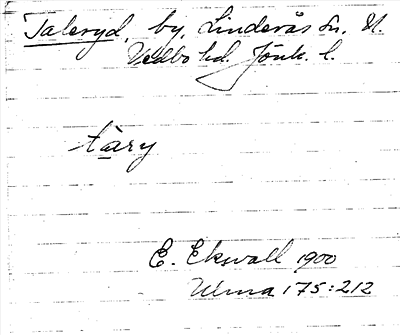 Taleryd, by, Linderås sn. N.
Vedbo hd. Jönk. l.
tàry
E. Ekwall 1900
Ulma 175:212